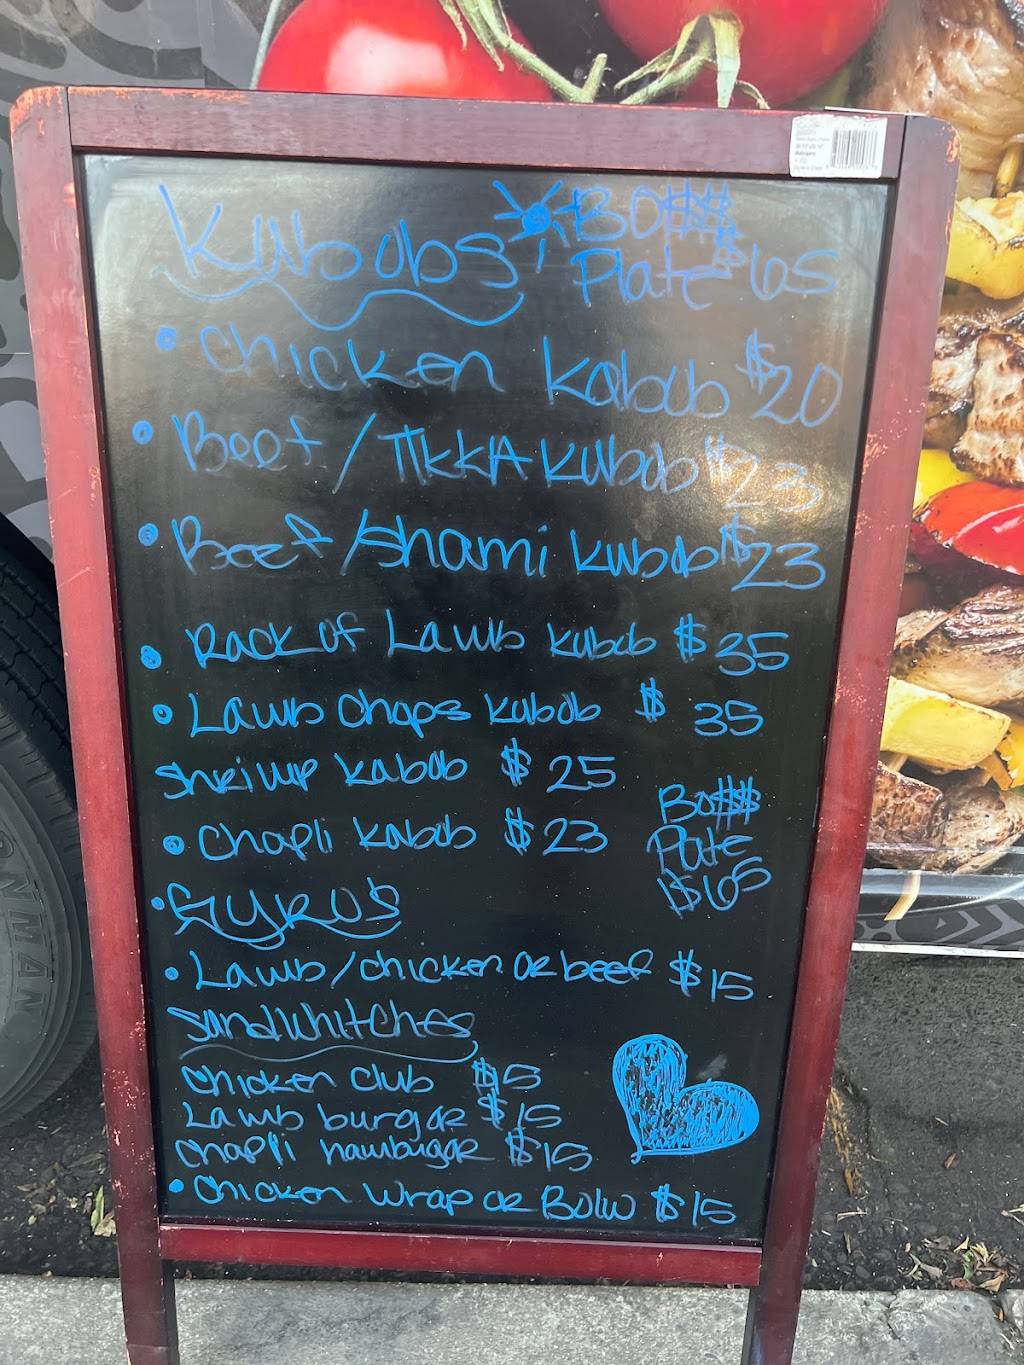 Kubobs BO$$$
Plate $65
• Chicken Kabub $20
• Beef / TIKKIA KUbob $23
• Beef / Shami Kubob $23
• Rack of Lamb Kubob $35
• Lamb Chops Kubob $ 35
Shrimp Kabob $ 25
• Chapli Kabob $ 23
BO$$$
Plate
$65
• Gyros
• Lamb / chicken or beef $15
Sandwhitches
Chicken Club $15
Lamb burgar $15
Chapli hamburgar $15
• Chicken Wrap or Bolw $15
NMAN